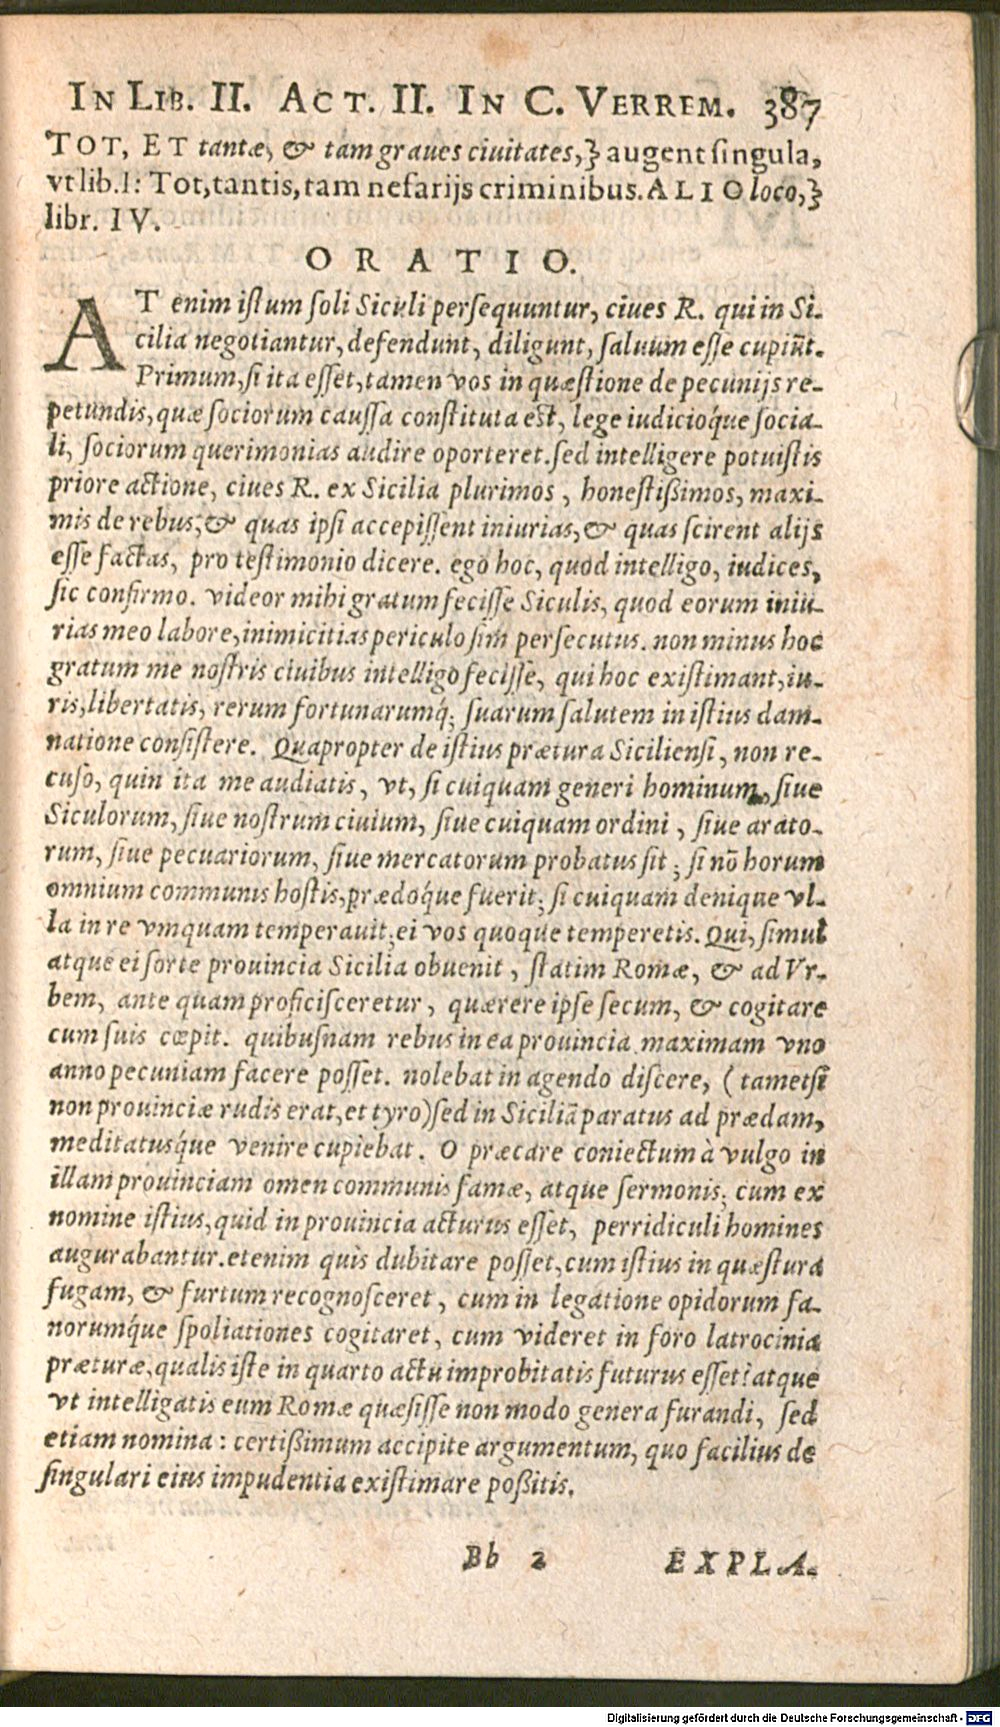 IN LIB. II. ACT. II. IN C. VERREM. 387
TOT, ET tantæ, & tam graues ciuitates,} augent singula,
vt lib. I: Tot, tantis, tam nefarijs criminibus. ALIO loco,}
libr. IV.
ORATIO.
AT enim istum soli Siculi persequuntur, ciues R. qui in Si-
cilia negotiantur, defendunt, diligunt, saluum esse cupiūt.
Primum, si ita esset, tamen vos in quæstione de pecunijs re-
petundis, quæ sociorum caussa constituta est, lege iudicióque socia-
li, sociorum querimonias audire oporteret. sed intelligere potuistis
priore actione, ciues R. ex Sicilia plurimos, honestißimos, maxi-
mis de rebus, & quas ipsi accepissent iniurias, & quas scirent alijs
esse factas, pro testimonio dicere. ego hoc, quod intelligo, iudices,
sic confirmo. videor mihi gratum fecisse Siculis, quod eorum iniu-
rias meo labore, inimicitias periculo sim persecutus. non minus hoc
gratum me nostris ciuibus intelligo fecisse, qui hoc existimant, iu-
ris, libertatis, rerum fortunarumq́; suarum salutem in istius dam-
natione consistere. Quapropter de istius prætura Siciliensi, non re-
cuso, quin ita me audiatis, vt, si cuiquam generi hominum, siue
Siculorum, siue nostrum ciuium, siue cuiquam ordini, siue arato-
rum, siue pecuariorum, siue mercatorum probatus sit; si nō horum
omnium communis hostis, prædóque fuerit; si cuiquam denique vl-
la in re vmquam temperauit; ei vos quoque temperetis. Qui, simul
atque ei sorte prouincia Sicilia obuenit, statim Romæ, & ad Vr-
bem, ante quam proficisceretur, quærere ipse secum, & cogitare
cum suis cœpit. quibusnam rebus in ea prouincia maximam vno
anno pecuniam facere posset. nolebat in agendo discere, (tametsi
non prouinciæ rudis erat, et tyro) sed in Siciliā paratus ad prædam,
meditatusq́ue venire cupiebat. O præcare coniectum à vulgo in
illam prouinciam omen communis famæ, atque sermonis; cum ex
nomine istius, quid in prouincia acturus esset, perridiculi homines
augurabantur. etenim quis dubitare posset, cum istius in quæstura
fugam, & furtum recognosceret, cum in legatione opidorum fa-
norumq́ue spoliationes cogitaret, cum videret in foro latrocinia
præturæ, qualis iste in quarto actu improbitatis futurus esset? atque
vt intelligatis eum Romæ quæsisse non modo genera furandi, sed
etiam nomina: certißimum accipite argumentum, quo facilius de
singulari eius impudentia existimare poßitis.
Bb 2 EXPLA-
Digitalisierung gefördert durch die Deutsche Forschungsgemeinschaft - DFG